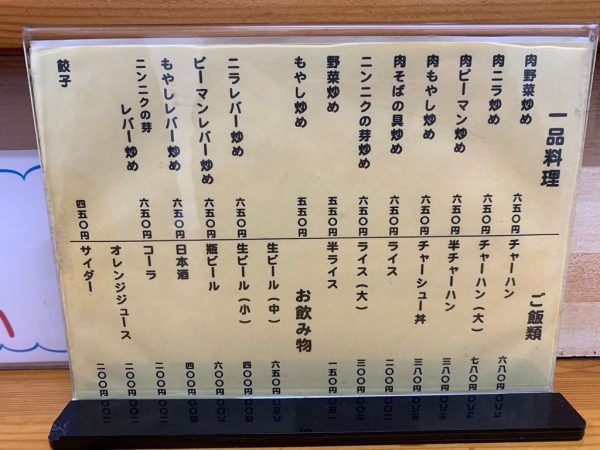 一品料理
肉野菜炒め 六五〇円
肉ニラ炒め 六五〇円
肉ピーマン炒め 六五〇円
肉もやし炒め 六五〇円
肉そばの具炒め 六五〇円
ニンニクの芽炒め 六五〇円
野菜炒め 五五〇円
もやし炒め 五五〇円
ニラレバー炒め 六五〇円
ピーマンレバー炒め 六五〇円
もやしレバー炒め 六五〇円
ニンニクの芽
レバー炒め 六五〇円
餃子 四五〇円
ご飯類
チャーハン 六八〇円
チャーハン（大） 七八〇円
半チャーハン 三八〇円
チャーシュー丼 三八〇円
ライス 二〇〇円
ライス（大） 三〇〇円
半ライス 一五〇円
お飲み物
生ビール（中） 六五〇円
生ビール（小） 四〇〇円
瓶ビール 六〇〇円
日本酒 四〇〇円
コーラ 二〇〇円
オレンジジュース 二〇〇円
サイダー 二〇〇円